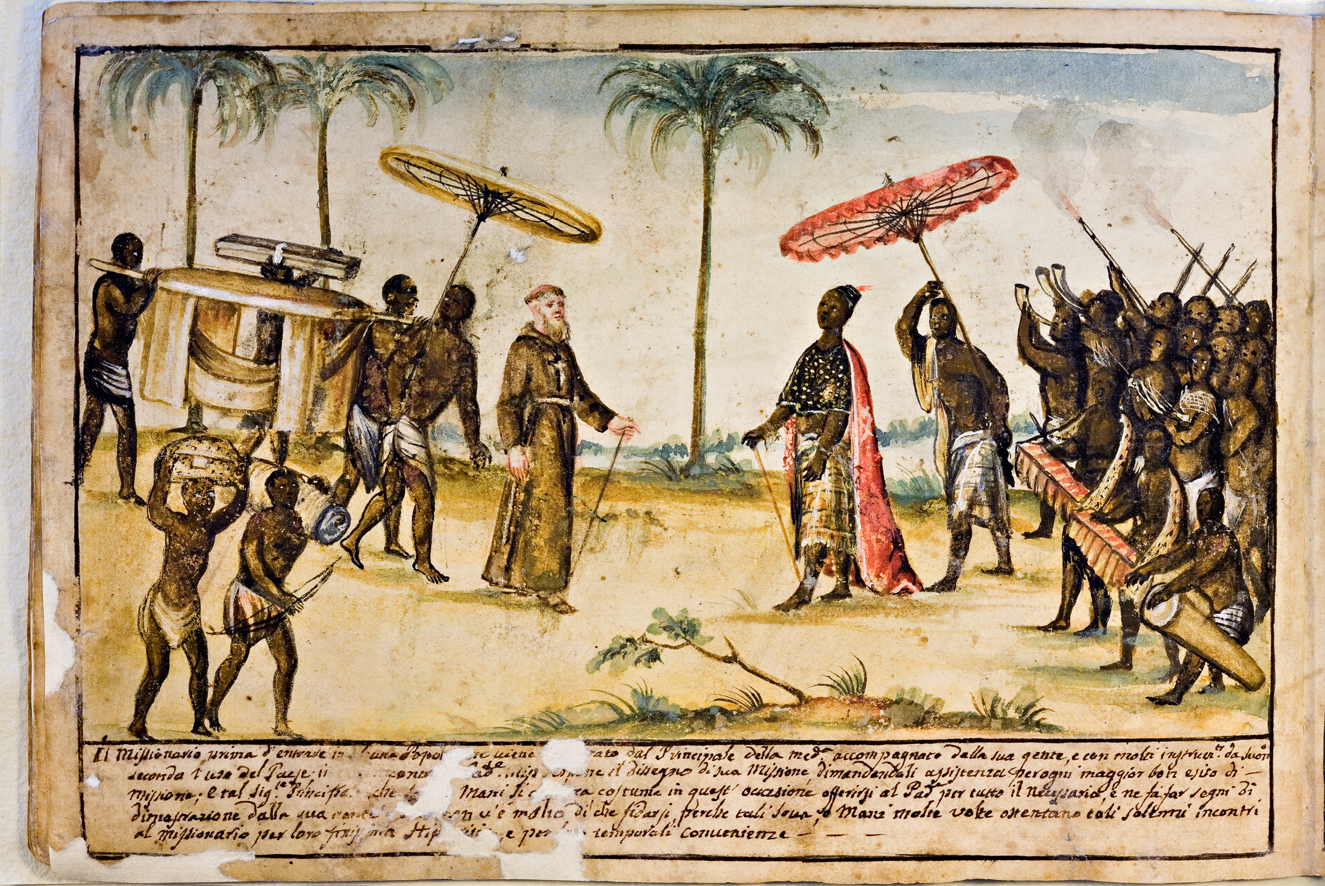 Il Missionario prima d'entrare in una Popol re viene rato dal Principale della med.ª accompagnato dalla sua gente, e con molti instrum.ti da suon
secondo l'uso del Paese; il contr ad.e Miss espone il disegno di sua Missione dimandandali assistenza per ogni maggior bon esito di —
Missione; E tal Sig.re Principa che Mani si ra costuma in quest' occasione offerirsi al Pad.e per tutto il necessario, e ne fa far segni di
dimostrazione dalla sua gente n v'è molto di che fidarsi, perche tali Soua, o Mani molte volte ostentano tali solenni incontri
al missionario per loro Hip e per temporali convenienze — — —